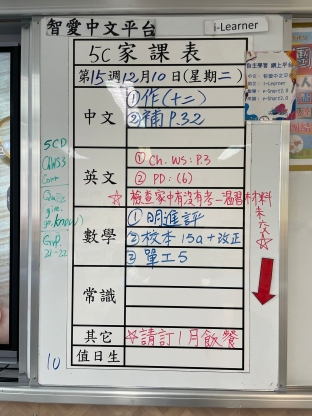 智愛中文平台
i-Learner
5C 家課表
第15週12月10日(星期二)
中文
①作(十二)
②補 P.32
英文
① Ch. WS: P.3
② PD: (6)
☆ 檢查家中有沒有考一溫習材料
未交☆
數學
① 明進評
② 校本 15a + 改正
③ 單工5
常識
其它
☆請訂1月飯餐
值日生
5CD
Corr
Quiz
21-22
10
自主學習 網上平台